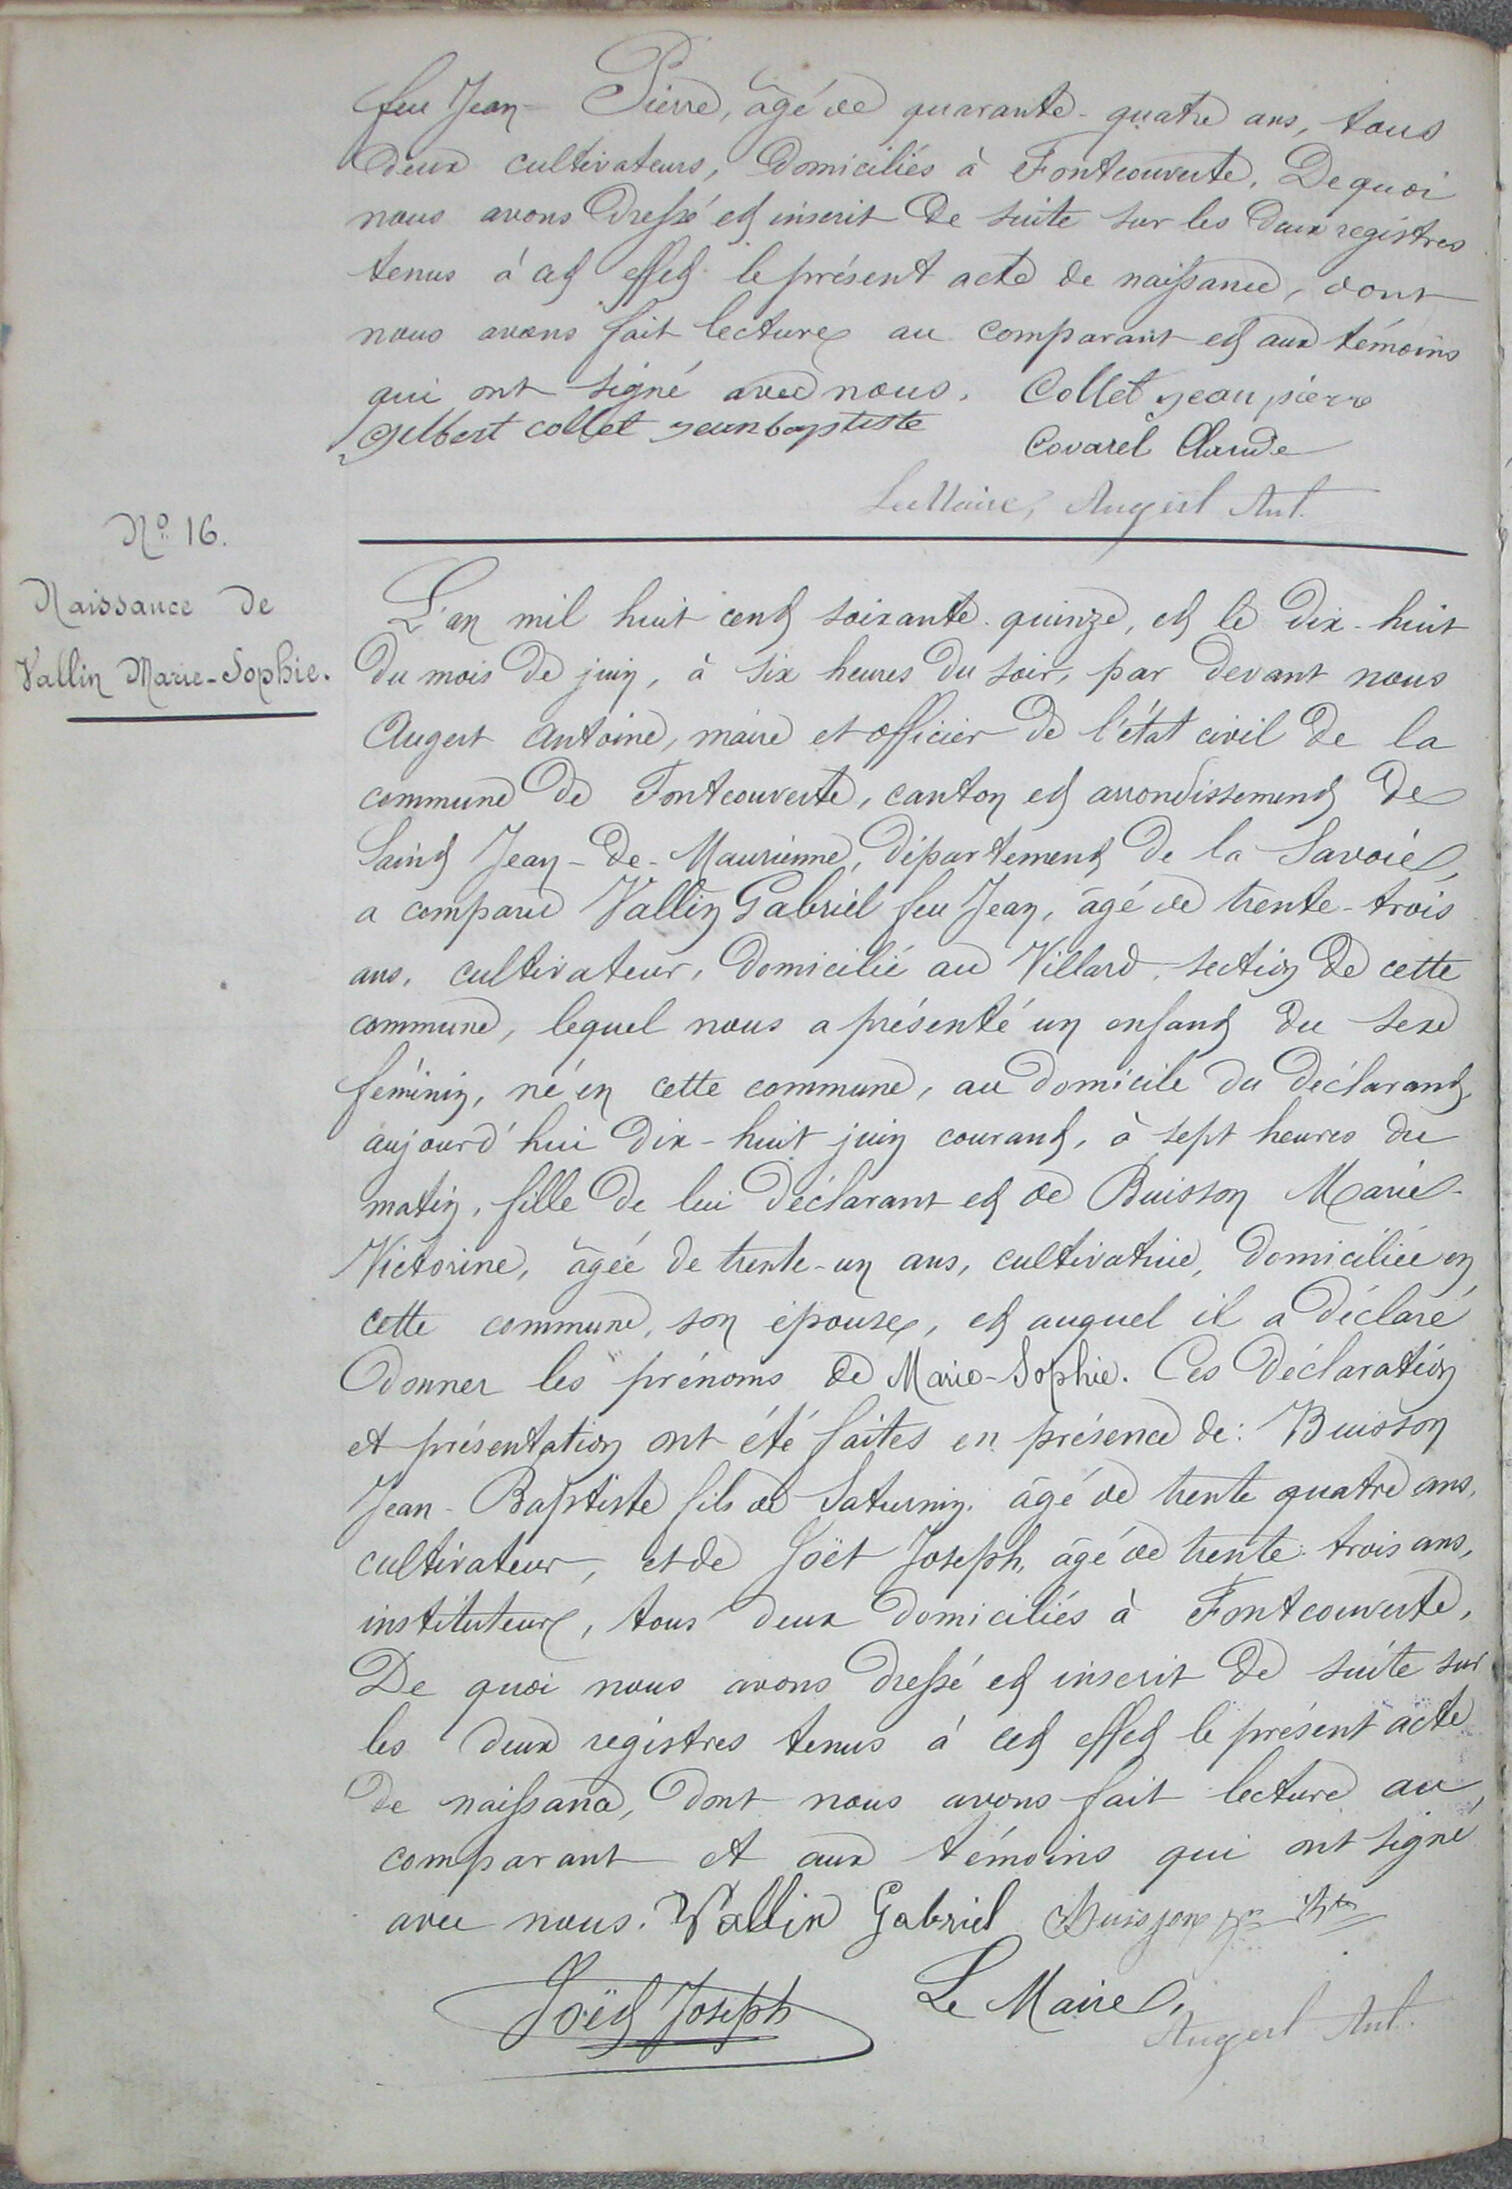 feu Jean-Pierre, âgé de quarante-quatre ans, tous
deux cultivateurs, domiciliés à Fontcouverte. De quoi
nous avons dressé et inscrit de suite sur les deux registres
tenus à cet effet le présent acte de naissance, dont
nous avons fait lecture au comparant et aux témoins
qui ont signé avec nous. Collet jean pierre
Gilbert collet jeanbaptiste
Covarel Claude
Le Maire, Augert Ant.
Nº 16.
Naissance de
Vallin Marie-Sophie.
L'an mil huit cent soixante-quinze, et le dix-huit
du mois de juin, à six heures du soir, par devant nous
Augert Antoine, maire et officier de l'état civil de la
commune de Fontcouverte, canton et arrondissement de
Saint Jean-de-Maurienne, département de la Savoie,
a comparu Vallin Gabriel feu Jean, âgé de trente-trois
ans, cultivateur, domicilié au Villard, section de cette
commune, lequel nous a présenté un enfant du sexe
féminin, né en cette commune, au domicile du déclarant,
aujourd'hui dix-huit juin courant, à sept heures du
matin, fille de lui déclarant et de Buisson Marie-
Victorine, âgée de trente-un ans, cultivatrice, domiciliée en
cette commune, son épouse, et auquel il a déclaré
donner les prénoms de Marie-Sophie. Ces déclaration
et présentation ont été faites en présence de: Buisson
Jean-Baptiste fils de Saturnin, âgé de trente quatre ans,
cultivateur, et de Joët Joseph, âgé de trente-trois ans,
instituteur, tous deux domiciliés à Fontcouverte,
De quoi nous avons dressé et inscrit de suite sur
les deux registres tenus à cet effet le présent acte
de naissance, dont nous avons fait lecture au
comparant et aux témoins qui ont signé
avec nous. Vallin Gabriel Buisson jn Bte
Joët Joseph Le Maire,
Augert Ant.